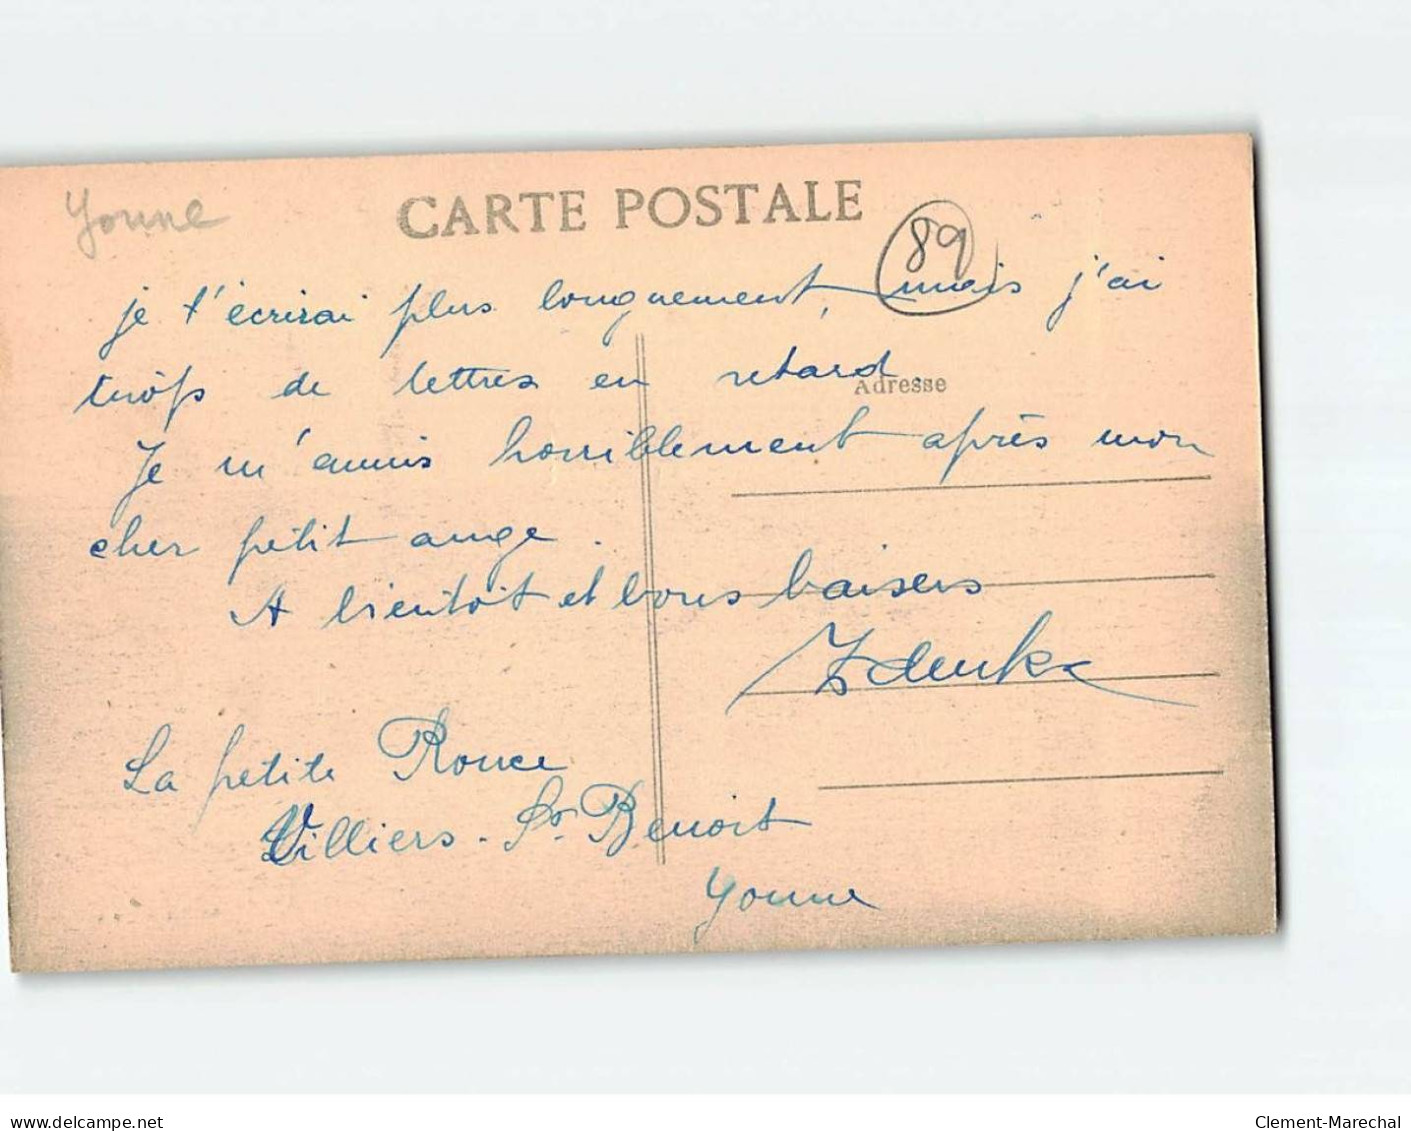 Yonne
CARTE POSTALE
89
je t'écrirai plus longuement, mais j'ai
trops de lettres en retard.
Adresse
Je m'ennuis horriblement après mon
cher petit ange.
A bientôit et bons baisers
Zdenka
La petite Rouce
Villiers-St Benoit
Yonne
www.delcampe.net
Clement-Marechal